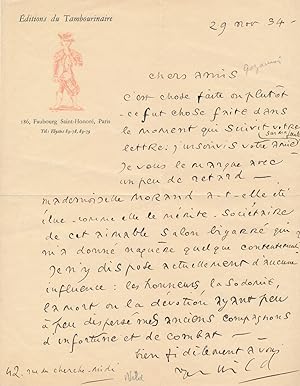 Éditions du Tambourinaire
29 nov 34 -
186, Faubourg Saint-Honoré, Paris
Tél : Élysées
chers amis
c'est chose faite ou plutôt
ce fut chose faite dans
le moment qui suivit votre
lettre. J'
Je vous le marque avec
un peu de retard —
mademoiselle MORAND a-t-elle été
élue comme elle le mérite. Sociétaire
de cet aimable Salon bigarré qui
m'a donné naguère quelque contentement
Je n'y dispose actuellement d'aucune
influence : les honneurs la Sodomie,
la mort ou la dévotion ayant peu
à peu dispersé mes anciens compagnons
d'infortune et de combat —
bien fidèlement à vous
42. rue du cherche-midi